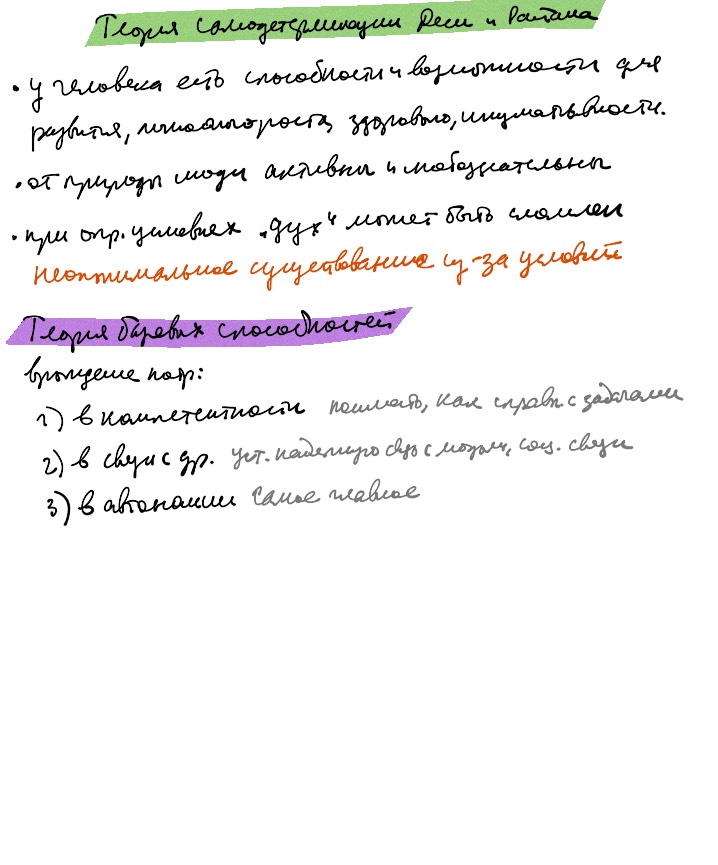 Теория самодетерминации Деси и Райана
• у человека есть способности и возможности для
развития, личностного роста, здорового, инициативности.
• от природы люди активны и любознательны
• при опр. условиях „дух“ может быть сломлен
неоптимальное существование из-за условий
Теория базовых способностей
врождение потр:
1) в компетентности понимать, как справ с задачами
2) в связи с др. уст. надежную связь с людьми, соц. связи
3) в автономии самое главное